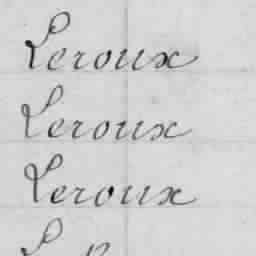 Leroux
Leroux
Leroux